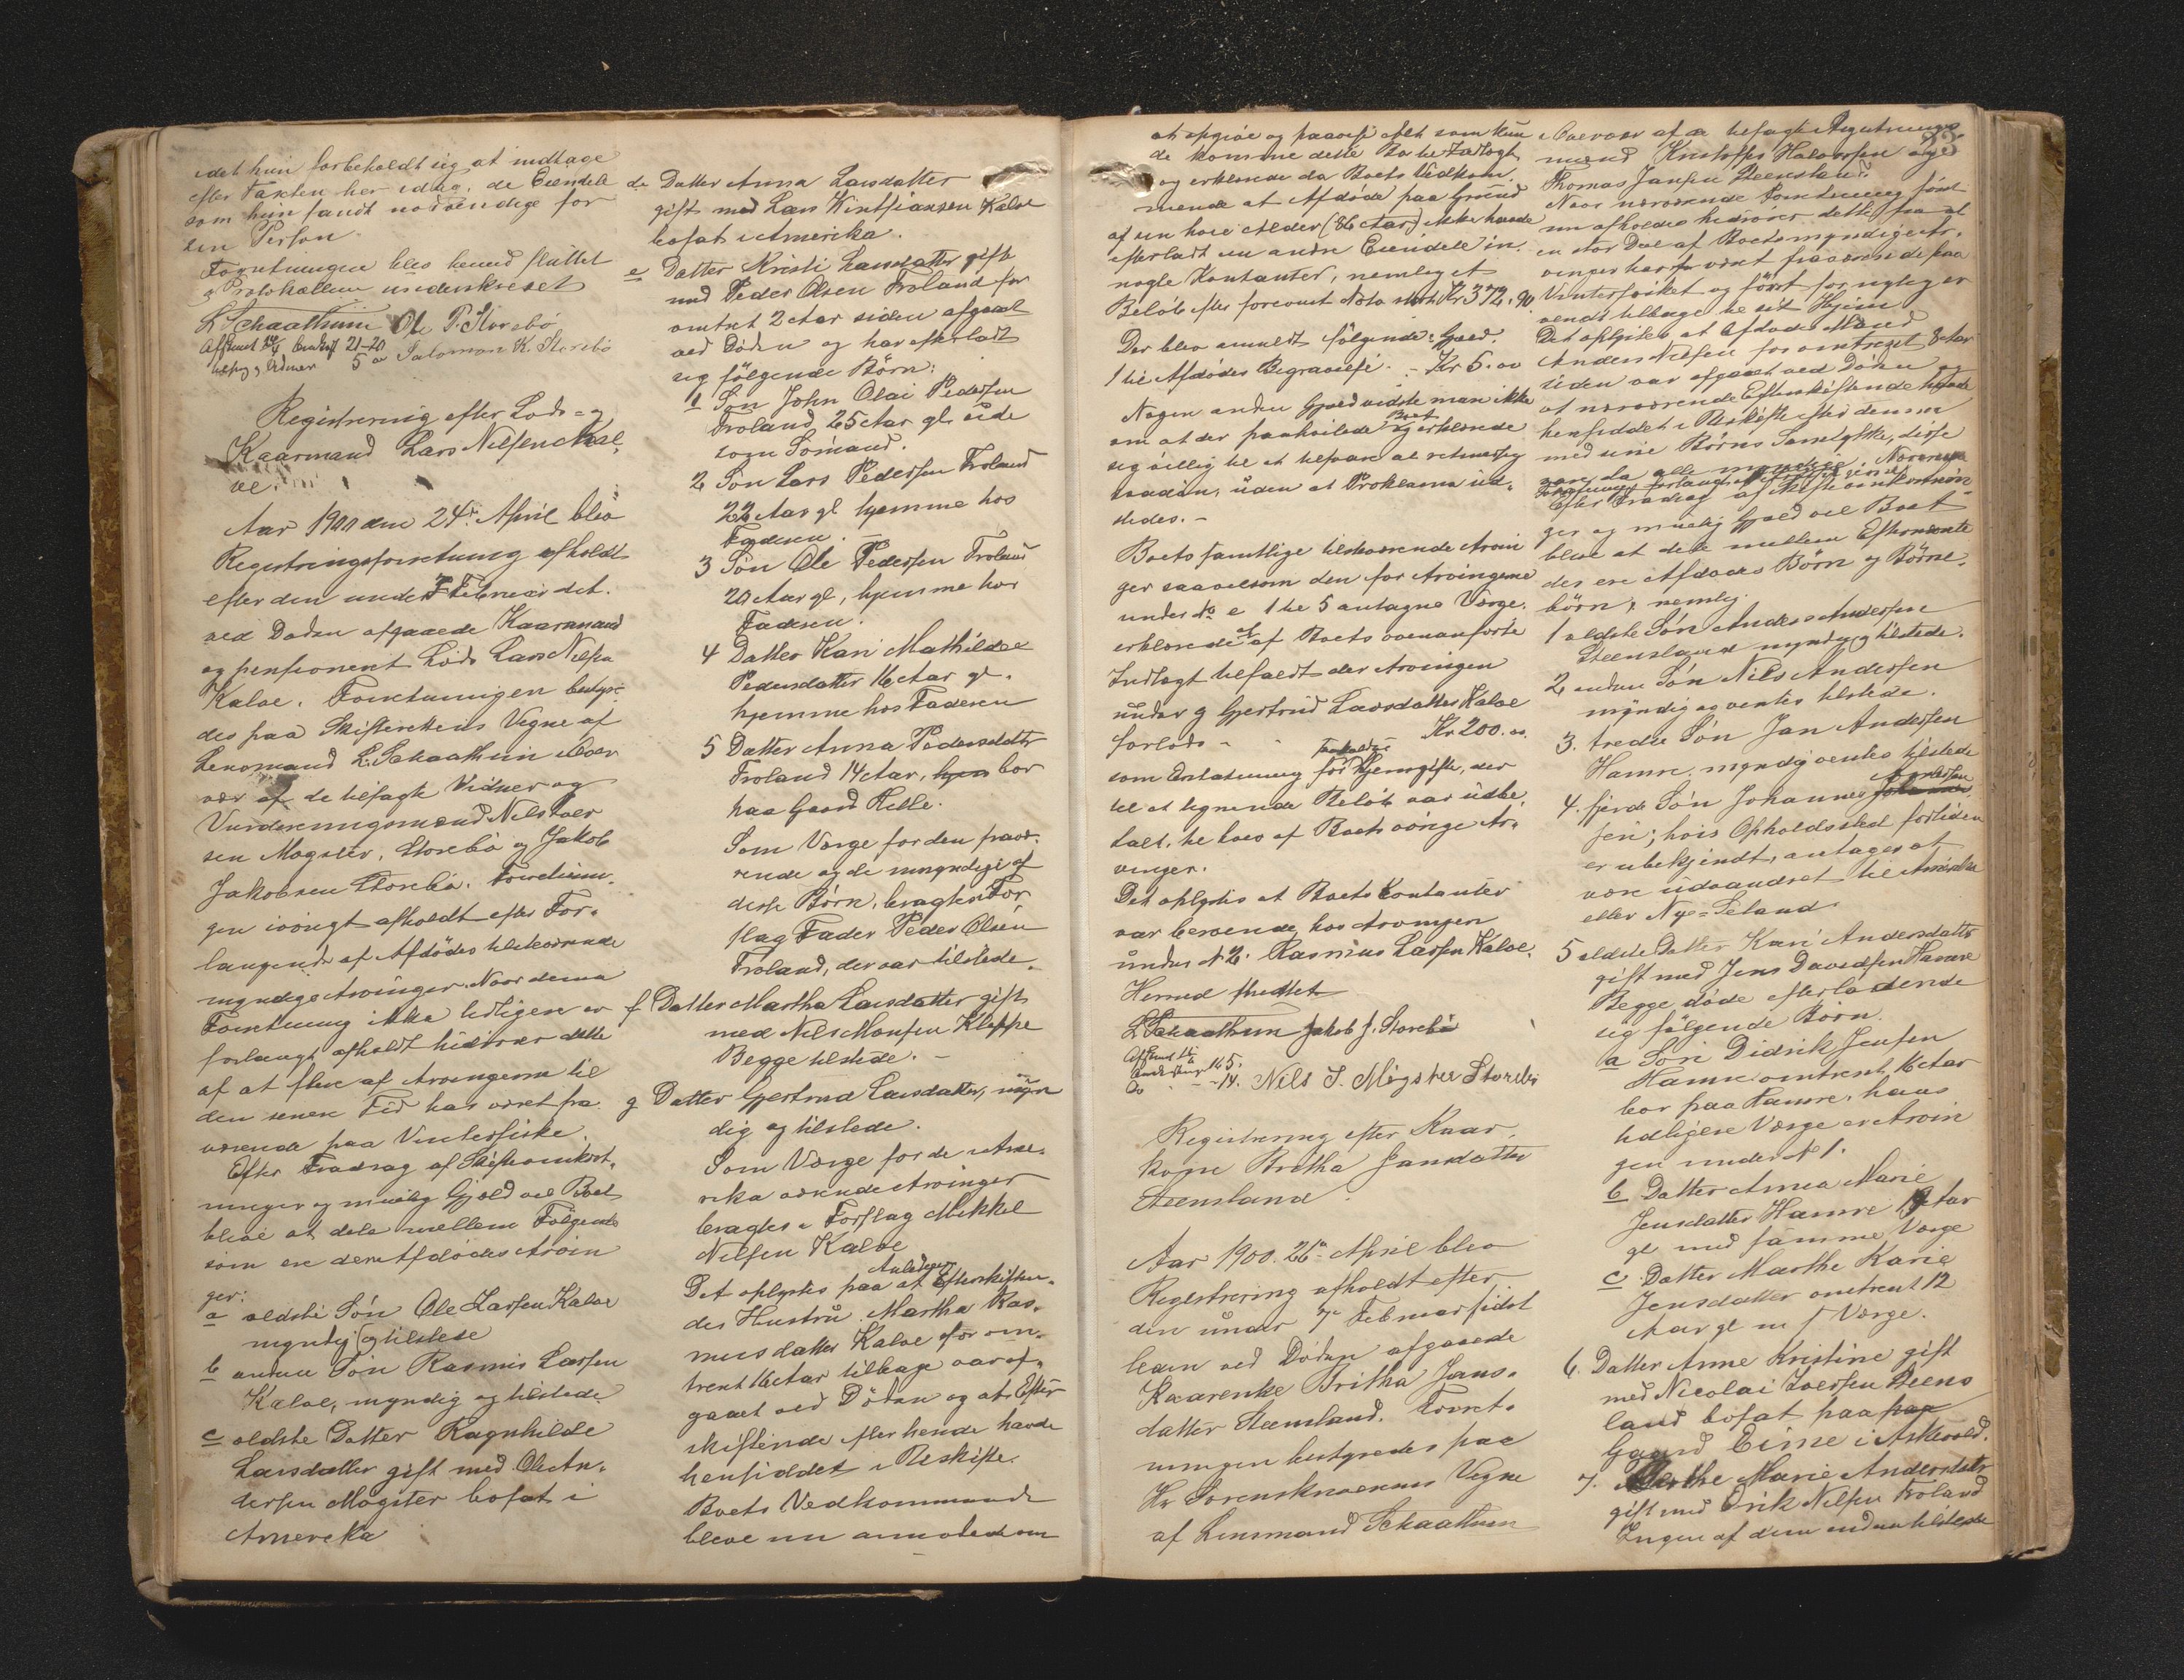 idet hun forbeholdt sig at indtage
efter Taxten her idag, de Eiendele
som hun fandt nødvendige for
sin Person.
Forretningen blev hermed sluttet
og Protokollen underskrevet
L Schaathun Ole P. Storebø
Salomon K. Storebø
Registrering efter Lods- og
Kaarmand Lars Nilsen Kal-
ve.
Aar 1900 den 24de April blev
Registreringsforretning afholdt
efter den under 7 Februar det.
ved Døden afgaaede Kaarmand
og pensioneret Lods Lars Nilsen
Kalve. Forretningen bestyre-
des paa Skifterettens Vegne af
Lensmand L. Schaathun i Over-
vær af de tilsagte Vidner og
Vurderingsmænd Nils Iver-
sen Møgster, Storebø og Jakob
Jakobsen Storebø. Forretnin-
gen iøvrigt afholdt efter For-
langende af Afdødes tilstedeværende
myndige Arvinger. Naar denne
Forretning ikke tidligere er
forlangt afholdt hidrører dette
af at flere af Arvingerne til
den senere Tid har været fra-
værende paa Vinterfiske.
Efter Fradrag af Skifteomkost-
ninger og mulig Gjæld vil Boet
blive at dele mellem Følgende
som ere den Afdødes Arvin-
ger:
a ældste Søn Ole Larsen Kalve
myndig og tilstede
b anden Søn Rasmus Larsen
Kalve, myndig og tilstede.
c ældste Datter Ragnhilde
Larsdatter gift med Ole An-
dersen Møgster bosat i
Amerika
d Datter Anna Larsdatter
gift med Lars Kalve
bosat i Amerika.
e Datter Kristi Larsdatter gift
med Peder Olsen Froland for
omtrent 2 Aar siden afgaaet
ved Døden og har efterladt
sig følgende Børn:
1 Søn John Olai Pedersen
Froland 25 Aar gl. ude
som Sømand.
2 Søn Lars Pedersen Froland
22 Aar gl hjemme hos
Faderen.
3 Søn Ole Pedersen Froland
20 Aar gl, hjemme hos
Faderen.
4 Datter Kari Mathilde
Pedersdatter 16 Aar gl.
hjemme hos Faderen
5 Datter Anna Pedersdatter
Froland 14 Aar, hjem bor
paa Gaard
Som Værge for den fravæ-
rende og de umyndige af
disse Børn, bragtes i For-
slag Fader Peder Olsen
Froland, der var tilstede.
f Datter Martha Larsdatter gift
med Nils Monsen Kleppe
Begge tilstede.
g Datter Gjertrud Larsdatter, myn-
dig og tilstede.
Som Værge for de i Ame-
rika værende Arvinger
bragtes i Forslag Mikkel
Nilsen Kalve
Anledning
Det oplystes paa at Efterskiften-
des Hustru Martha Ras-
musdatter Kalve for om-
trent 16 Aar tilbage var af-
gaaet ved Døden og at Efter-
skiftende efter hende havde
hensiddet i Uskifte.
Boets Vedkommende
bleve nu anmodede om
at opgive og paavise alt som kun-
de komme dette Bo til Indtægt
og erklærede da Boets Vedkom-
mende at Afdøde paa Grund
af sin høie Alder (86 Aar) ikke havde
efterladt sig andre Eiendele en
nogle Kontanter, nemlig et
Beløb efter forevist Nota stort Kr 372,90
Der blev anmeldt følgende Gjæld.
1 til Afdødes Begravelse. - Kr 5.00
Nogen anden Gjæld vidste man ikke
om at der paahvilede Boet og erklærede
sig villig til at tilsvare al retmæssig
saadan, uden at Proklama ud-
stedes. -
Boets samtlige tilstedeværende Arvin-
ger saavelsom den for Arvingerne
under No e 1 til 5 antagne Værge,
erklærede at af Boets ovenanførte
Indtægt tilfaldt der Arvingen
under g Gjertrud Larsdatter Kalve
forlods - Kr 200.00
som Erstatning for Hjemgifte, der
til et lignende Beløb var udbe-
talt, til hver af Boets øvrige Ar-
vinger.
Det oplystes at Boets Kontanter
var beroende hos Arvingen
under N 2. Rasmus Larsen Kalve.
Hermed sluttet
L Schaathun Jakob J. Storebø
Nils I. Møgster Storebø
Registrering efter Kaar-
kone Britha Jansdatter
Steensland.
Aar 1900. 26de April blev
Registrering afholdt efter
den under 7de Februar sidst
leden ved Døden afgaaede
Kaarenke Britha Jans-
datter Steensland. Forret-
ningen bestyredes paa
Hr Sorenskriverens Vegne
af Lensmand Schaathun
i Overvær af de tilsagte Registrerings-
mænd Kristoffer Halvorsen og
Thomas Jansen Steensland.
Naar nærværende Forretning først
nu afholdes hidrører dette fra at
en stor Del af Boets myndige Ar-
vinger har været fraværende paa
Vinterfisket og først for nylig er
vendt tilbage til sit Hjem
Det oplystes at Afdødes Mand
Anders Nilsen for omtrent 8 Aar
siden var afgaaet ved Døden og
at nærværende Efterskiftende havde
hensiddet i Uskifte efter denne
med sine Børns Samtykke, disse
vare da alle myndige. Nærværende
Efter Fradrag af Skifteomkostnin-
ger og mulig Gjæld vil Boet
blive at dele mellem Efternævnte
der ere Afdødes Børn og Børne-
børn, nemlig.
1 ældste Søn Anders Andersen
Steensland myndig og tilstede.
2 anden Søn Nils Andersen
myndig og ventes tilstede.
3. tredie Søn Jan Andersen
Hamre. myndig ventes tilstede
4. fjerde Søn Johannes Andersen
sen; hvis Opholdssted fortiden
er ubekjendt, antages at
være udvandret til Amerika
eller Nye-Seland
5 ældste Datter Kari Andersdatter
gift med Jens Davidsen Hamre
Begge døde efterladende
sig følgende Børn.
a Søn Didrik Jensen
Hamre omtrent 16 Aar
bor paa Hamre, hans
tidligere Værge er Arvin-
gen under N 1.
b Datter Anna Marie
Jensdatter Hamre Aar
gl med samme Værge
c. Datter Marthe Karie
Jensdatter omtrent 12
Aar gl m s Værge.
6. Datter Anne Kristine gift
med Nicolai Iversen Steens
land bosat paa paa
Gaard Eime i Askvold.
7. Marthe Marie Andersdatter
gift med Erik Nilsen Froland
Ingen af dem endnu tilstede